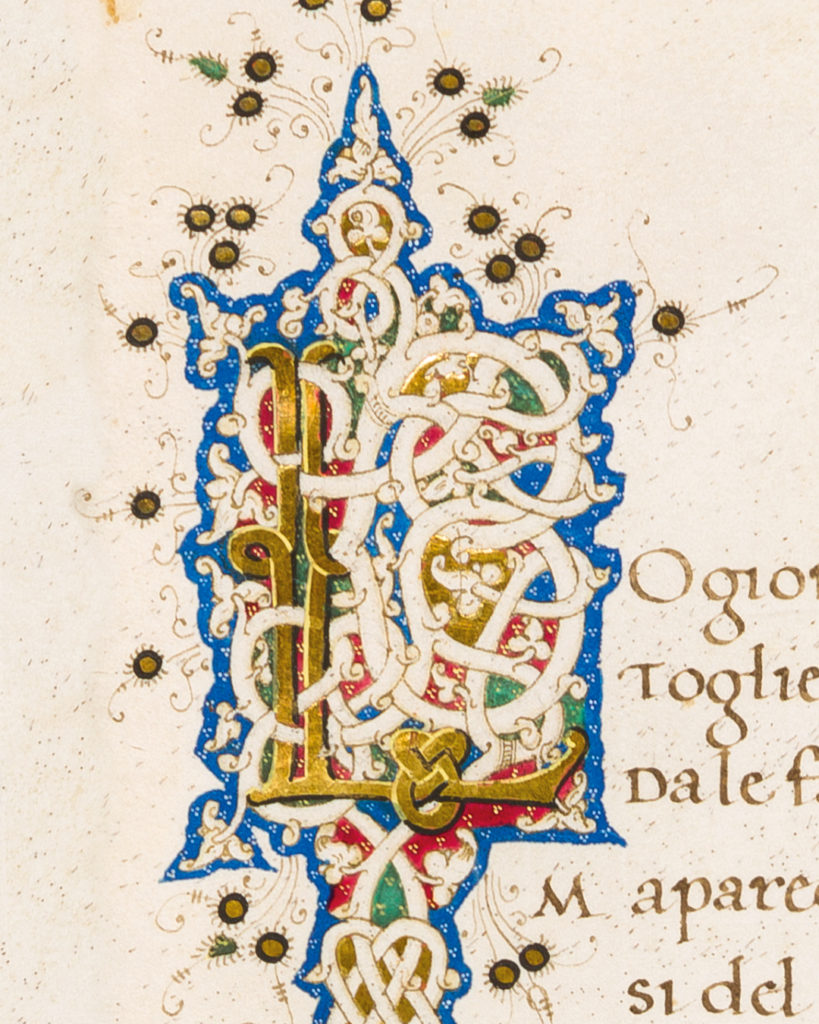 LOgior
Toglie
Da le f
M apare
si del